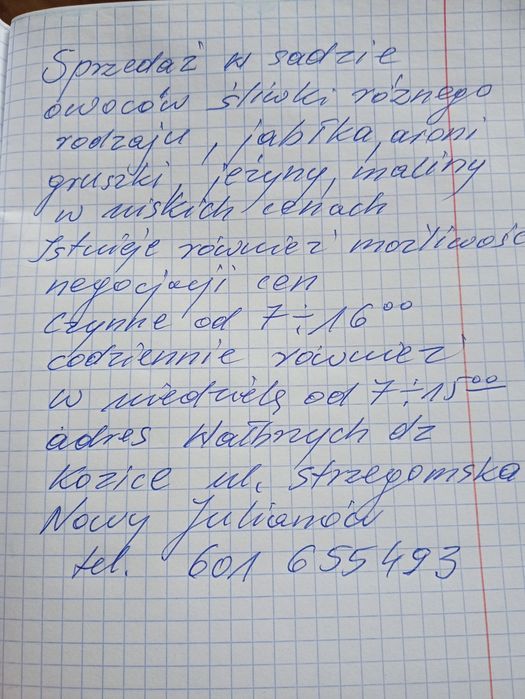 Sprzedaż w sadzie
owoców śliwki różnego
rodzaju, jabłka, aroni
gruszki, jeżyny, maliny
w niskich cenach
Istnieje również możliwość
negocjacji cen
Czynne od 7÷16⁰⁰
codziennie również
w niedzielę od 7÷15⁰⁰
adres Wałbrzych dz
Kozice ul. Strzegomska
Nowy Julianów
tel. 601 655493